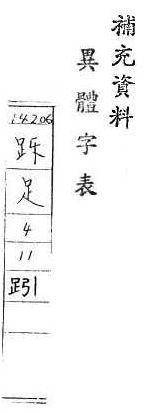 補充資料
異體字表
14206
足
4
11